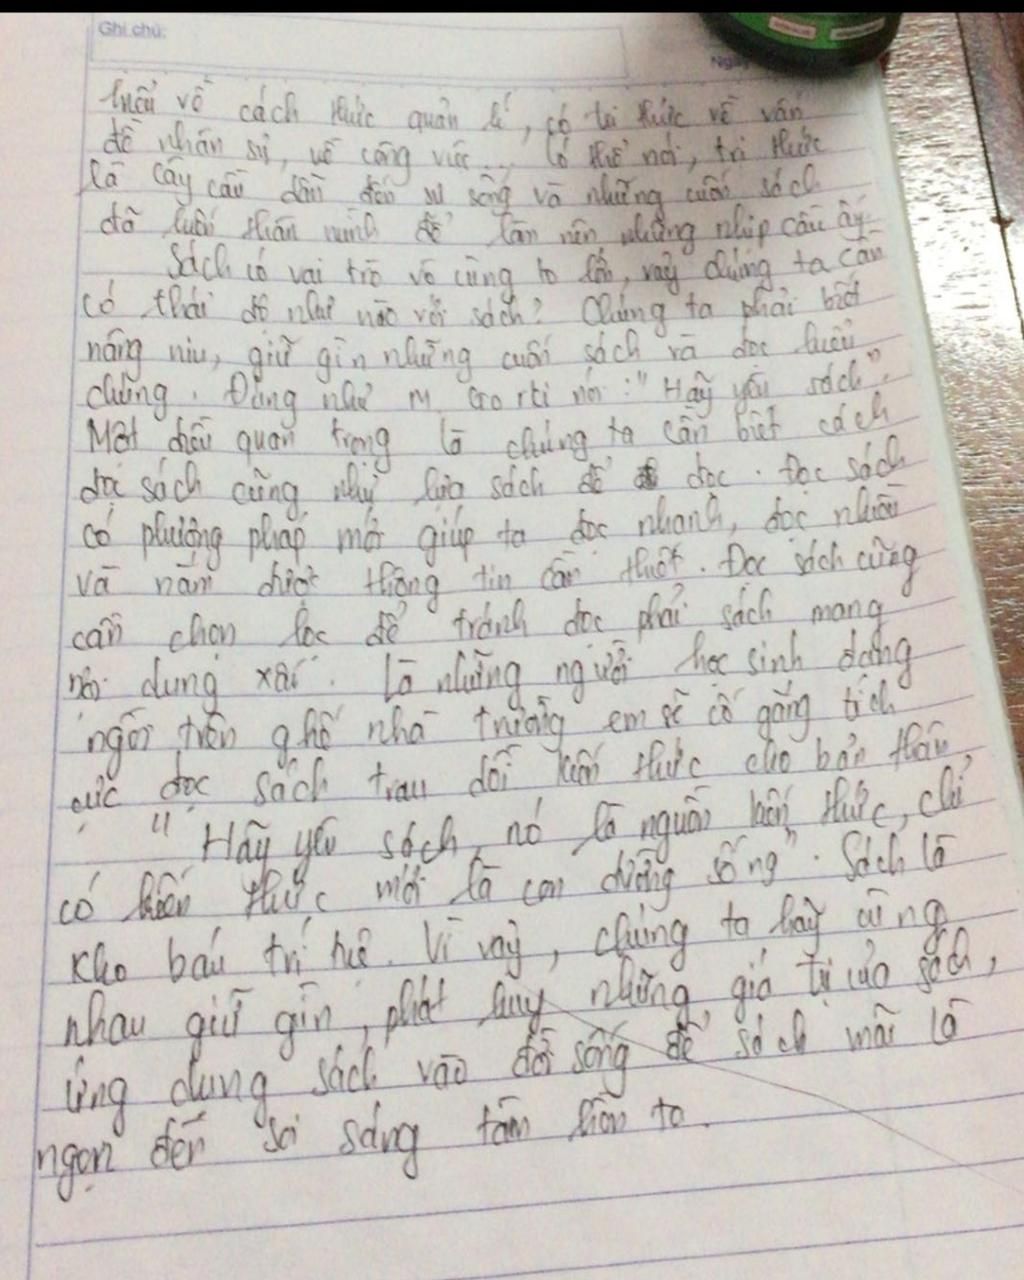 Ghi chú:
hiểu về cách thức quản lí, có tri thức về vấn
đề nhân sự, về công việc... Có thể nói, tri thức
là cây cầu dẫn đến sự sống và những cuốn sách
đã luôn thân mình để làm nên những nhịp cầu ấy.
Sách có vai trò vô cùng to lớn, vậy chúng ta cần
có thái độ như nào với sách? Chúng ta phải biết
nâng niu, giữ gìn những cuốn sách và đọc luôn
chúng. Đúng như M. Gorki nói: "Hãy yêu sách".
Một điều quan trọng là chúng ta cần biết cách
đọc sách cũng như lựa sách để đọc. Đọc sách
có phương pháp mới giúp ta đọc nhanh, đọc nhiều
và nắm được thông tin cần thiết. Đọc sách cũng
cần chọn lọc để tránh đọc phải sách mang
nội dung xấu. Là những người học sinh đang
ngồi trên ghế nhà trường em sẽ cố gắng tích
cực đọc sách trau dồi kiến thức cho bản thân.
"Hãy yêu sách, nó là nguồn kiến thức, chỉ
có kiến thức mới là con đường sống". Sách là
kho báu trí tuệ. Vì vậy, chúng ta hãy cùng
nhau giữ gìn, phát huy những giá trị của sách,
ứng dụng sách vào đời sống để sách mãi là
ngọn đèn soi sáng tâm hồn ta.